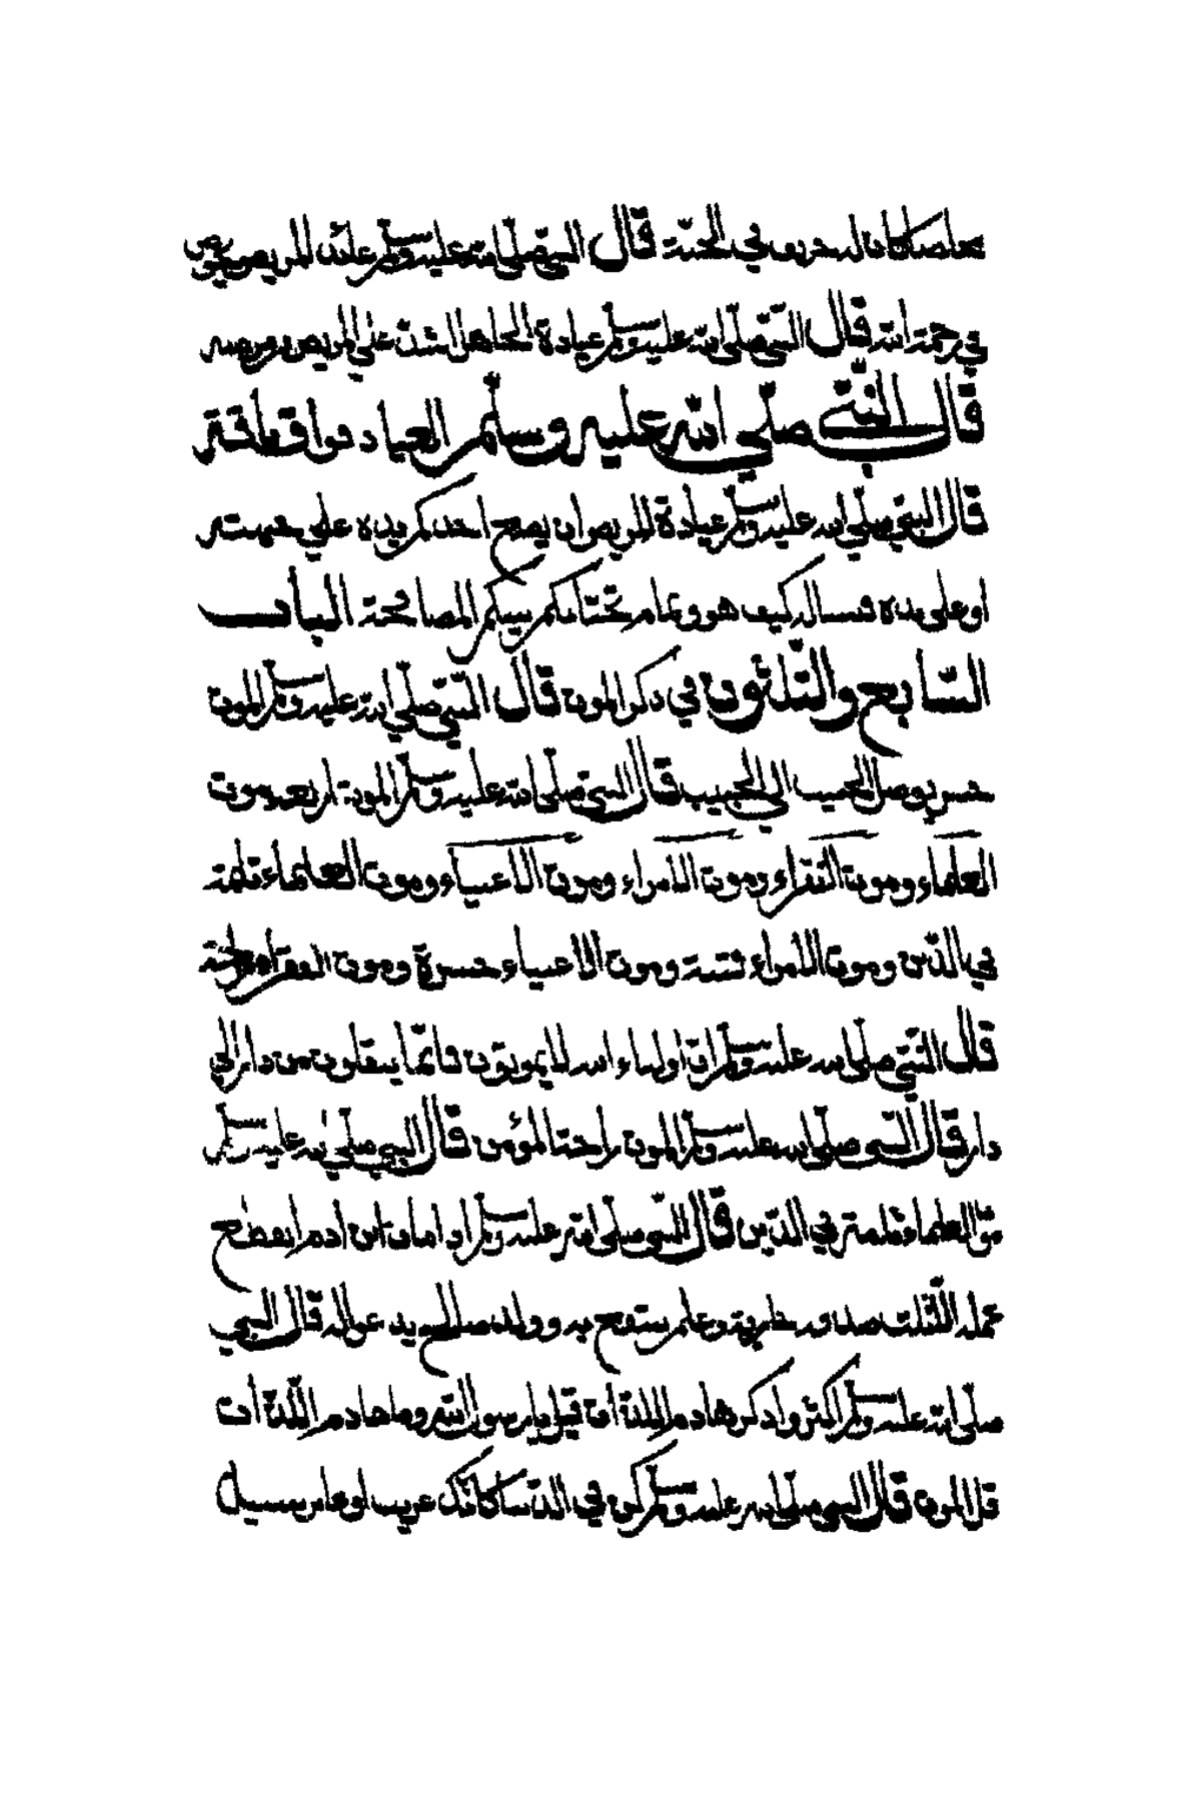 مريضا كان له خريف في الجنة قال النبي صلى الله عليه وسلم عائد المريض يخوض
في رحمة الله قال النبي صلى الله عليه وسلم عيادة الجاهل اشد على المريض من مرضه
قال النبي صلى الله عليه وسلم العيادة فواق ناقته
قال النبي صلى الله عليه وسلم عيادة المريض ان يضع احدكم يده على جبهته
او على يده فيساله كيف هو وتمام تحياتكم بينكم المصافحة الباب
السابع والثلثون في ذكر الموت قال النبي صلى الله عليه وسلم الموت
جسر يوصل الحبيب الى الحبيب قال النبي صلى الله عليه وسلم الموت اربعة موت
العلماء وموت الفقراء وموت الامراء وموت الاغنياء وموت العلماء ثلمة
في الدين وموت الامراء فتنة وموت الاغنياء حسرة وموت الفقراء راحة
قال النبي صلى الله عليه وسلم ان اولياء الله لا يموتون وانما ينقلون من دار الى
دار قال النبي صلى الله عليه وسلم الموت راحة المؤمن قال النبي صلى الله عليه وسلم
موت العلماء ثلمة في الدين قال النبي صلى الله عليه وسلم اذا مات ابن ادم انقطع
عمله الا ثلث صدقة جارية وعلم ينتفع به وولد صالح يدعو له قال النبي
صلى الله عليه وسلم اكثروا ذكر هادم اللذات قيل يا رسول الله وما هادم اللذات
قال الموت قال النبي صلى الله عليه وسلم كن في الدنيا كانك غريب او عابر سبيل